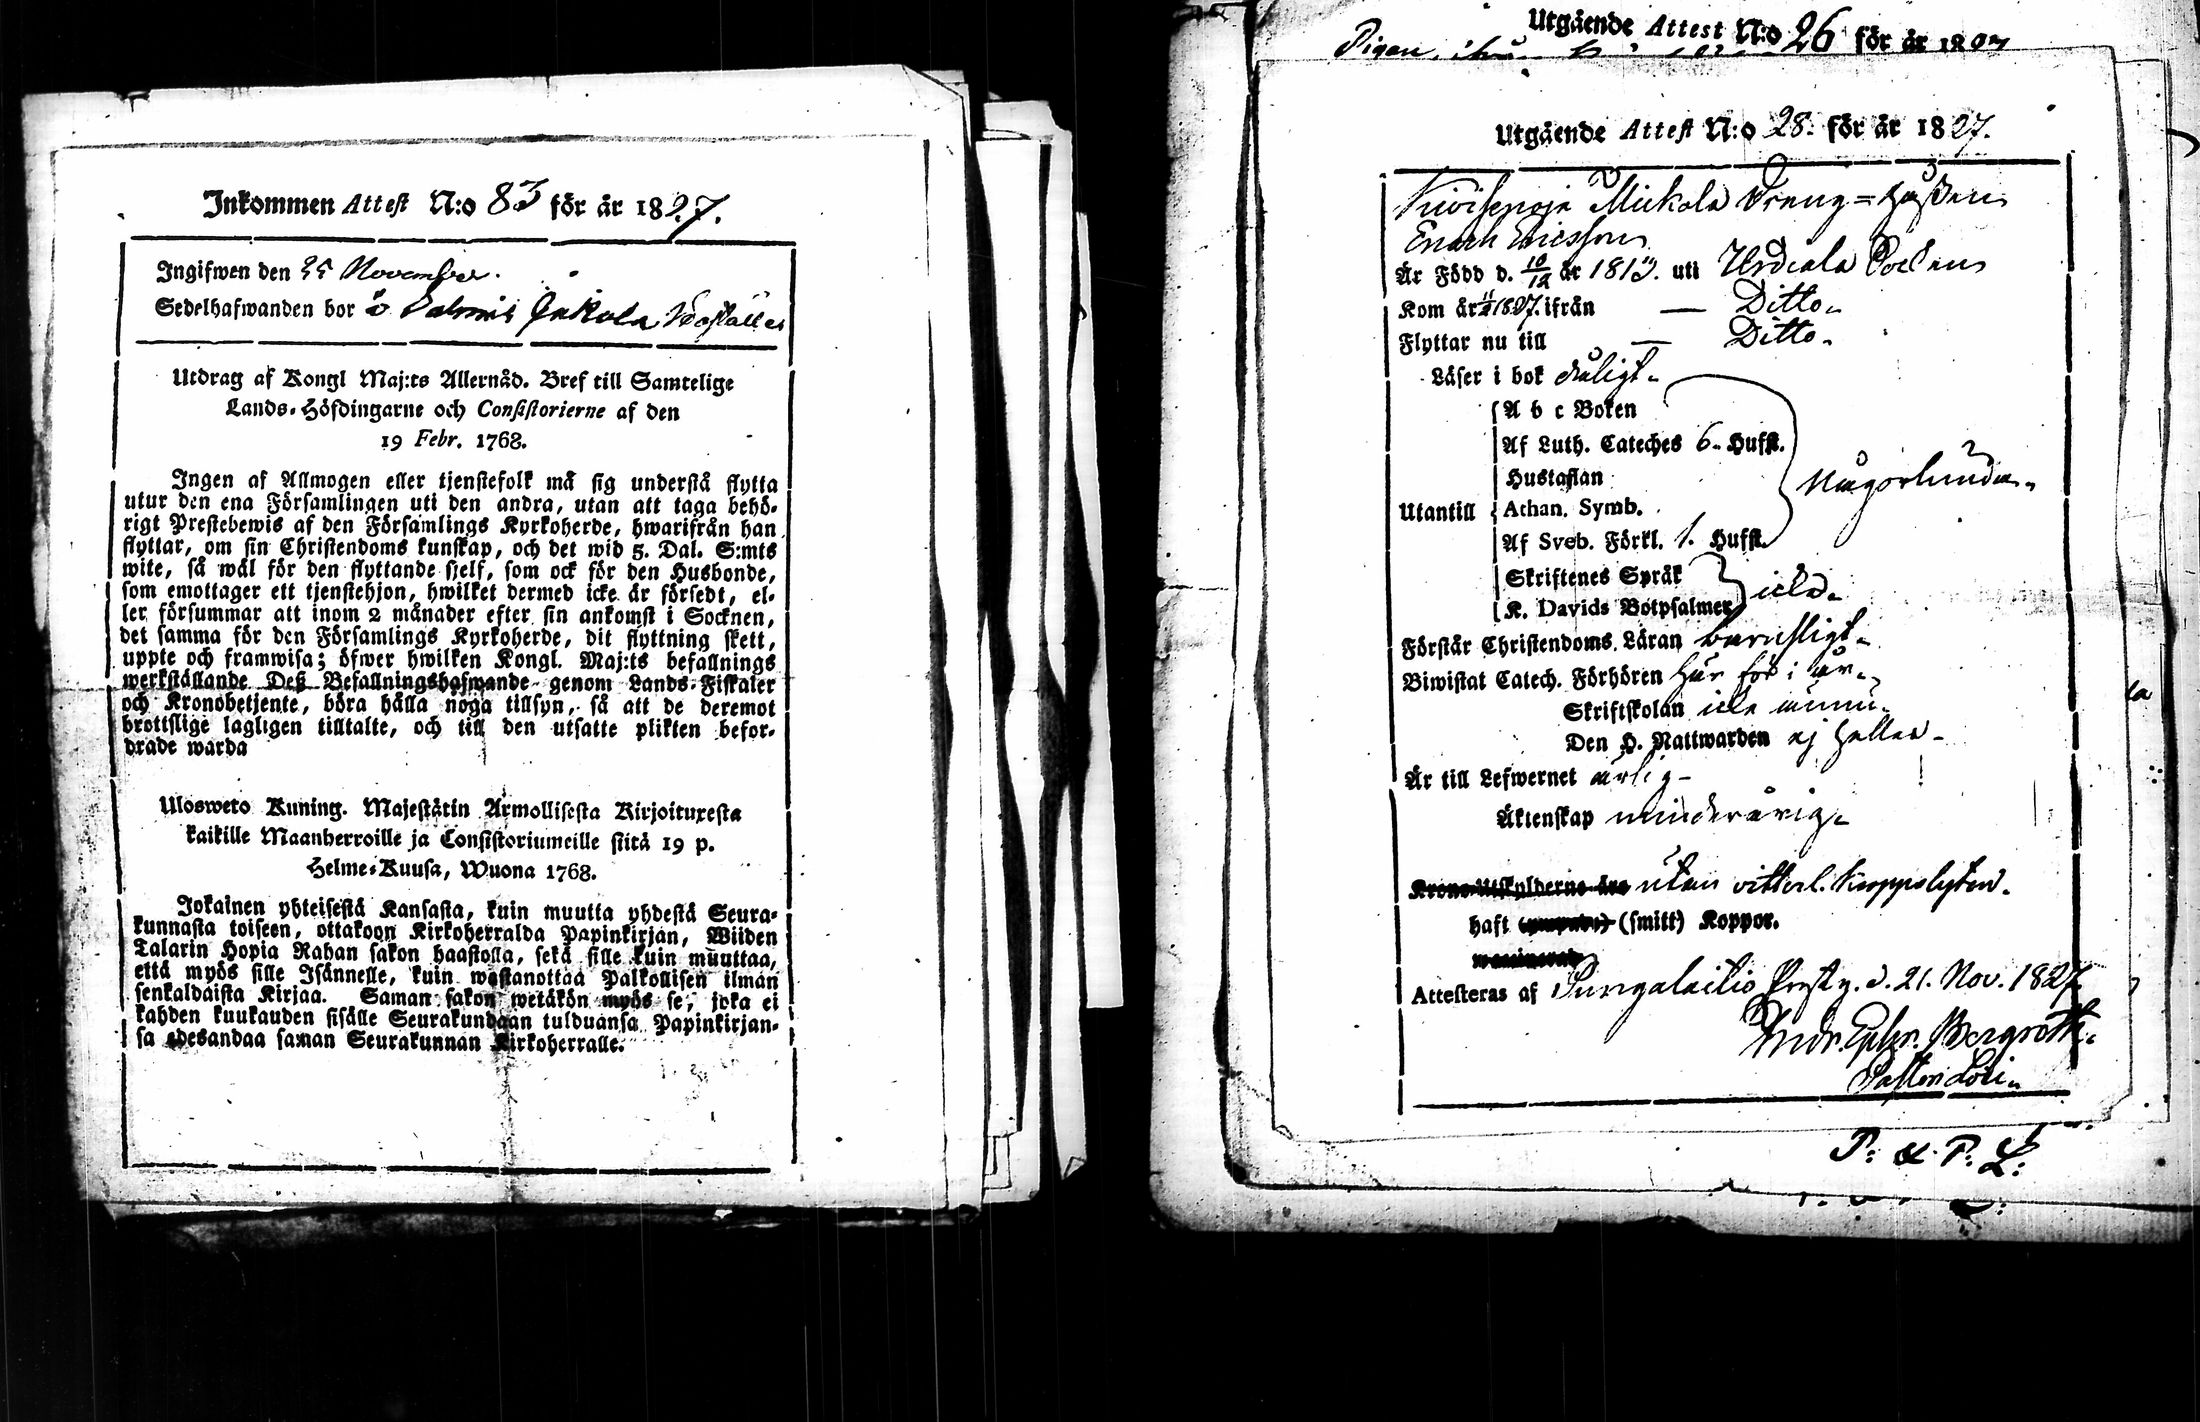 Inkommen Attest N:o 83 för år 1827.
Ingifwen den 25 November.
Sedelhafwanden bor å Salmis Jukola
Utdrag af Kongl Maj:ts Allernåd. Bref till Samtelige
Lands-Höfdingarne och Consistorierne af den
19 Febr. 1768.
Ingen af Allmogen eller tjenstefolk må sig understå flytta
utur den ena Församlingen uti den andra, utan att taga behö-
rigt Prestebewis af den Församlings Kyrkoherde, hwarifrån han
flyttar, om sin Christendoms kunskap, och det wid 5. Dal. S:mts
wite, så wäl för den flyttande sjelf, som ock för den Husbonde,
som emottager ett tjenstehjon, hwilket dermed icke är försedt, el-
ler försummar att inom 2 månader efter sin ankomst i Socknen,
det samma för den Församlings Kyrkoherde, dit flyttning skett,
uppte och framwisa; öfwer hwilken Kongl. Maj:ts befallnings
werkställande Deß Befallningshafwande genom Lands-Fiskaler
och Kronobetjente, böra hålla noga tillsyn, så att de deremot
brottslige lagligen tilltalte, och till den utsatte plikten befor-
drade warda
Ulosweto Kuning. Majestätin Armollisesta Kirjoituxesta
kaikille Maanherroille ja Consistoriumeille siitä 19 p.
Helme-Kuusa, Wuona 1768.
Jokainen yhteisestä Kansasta, kuin muutta yhdestä Seura-
kunnasta toiseen, ottakoon Kirkoherralda Papinkirjan, Wiiden
Talarin Hopia Rahan sakon haastolla, sekä sille kuin muuttaa,
että myös sille Isännelle, kuin wastanottaa Palkollisen ilman
senkaldaista Kirjaa. Saman sakon wetäkön myös se, joka ei
kahden kuukauden sisälle Seurakundaan tulduansa Papinkirjan-
sa edesandaa saman Seurakunnan Kirkoherralle.
Utgående Attest N:o 26 för år 1827
Pigan
Utgående Attest N:o 28. för år 1827.
Mickola Dreng=
Ericsson
Är Född d. 10/12 år 1813. uti Urdiala Socken
Kom år 1827. ifrån — Ditto.
Flyttar nu till — Ditto.
Läser i bok dåligt.
A b c Boken
Af Luth. Cateches 6. Hufst.
Hustaflan
någorlunda.
Utantill Athan. Symb.
Af Sveb. Förkl. 1. Hufst.
Skriftenes Språk
icke.
K. Davids Botpsalmer
Förstår Christendoms Läran barnsligt.
Biwistat Catech. Förhören här för i år.
Skriftskolan icke ännu.
Den H. Nattwarden ej heller.
Är till Lefwernet ärlig.
Äktenskap minderårig.
Krono-Utskylderne äro utan vitterl. kroppslyten.
haft (smitt) Koppor.
Attesteras af Pungalaitio Prestg. d. 21. Nov. 1827.
Andr. Ephr. Bergroth.
Pastor Loci.
P: & P: L: